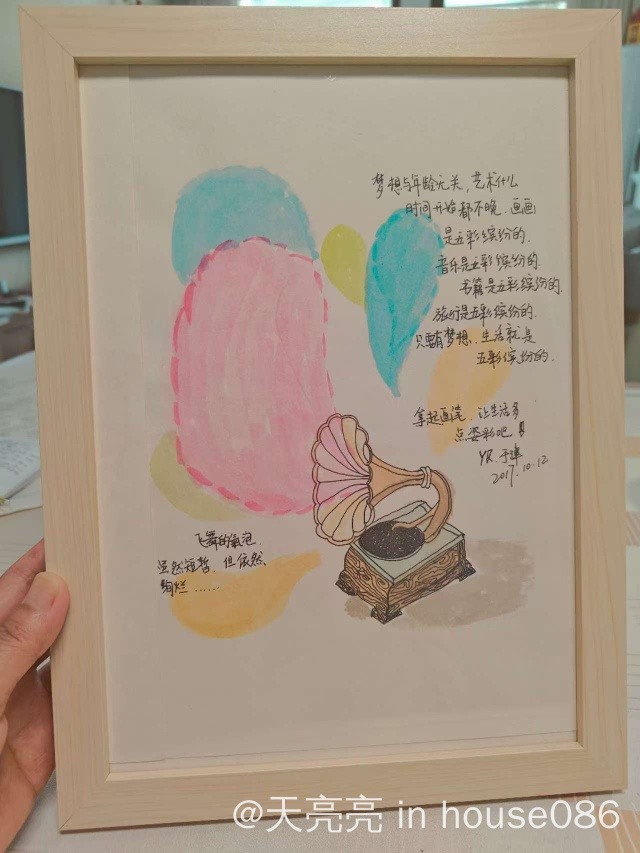 梦想与年龄无关,艺术什么
时间开始都不晚.画画
是五彩缤纷的.
音乐是五彩缤纷的.
书籍是五彩缤纷的.
旅行是五彩缤纷的.
只要有梦想,生活就是
五彩缤纷的.
拿起画笔,让生活多
点姿彩吧!
YR
2017.10.12
飞舞的氧泡.
虽然短暂,但依然
绚烂……
@天亮亮 in house086